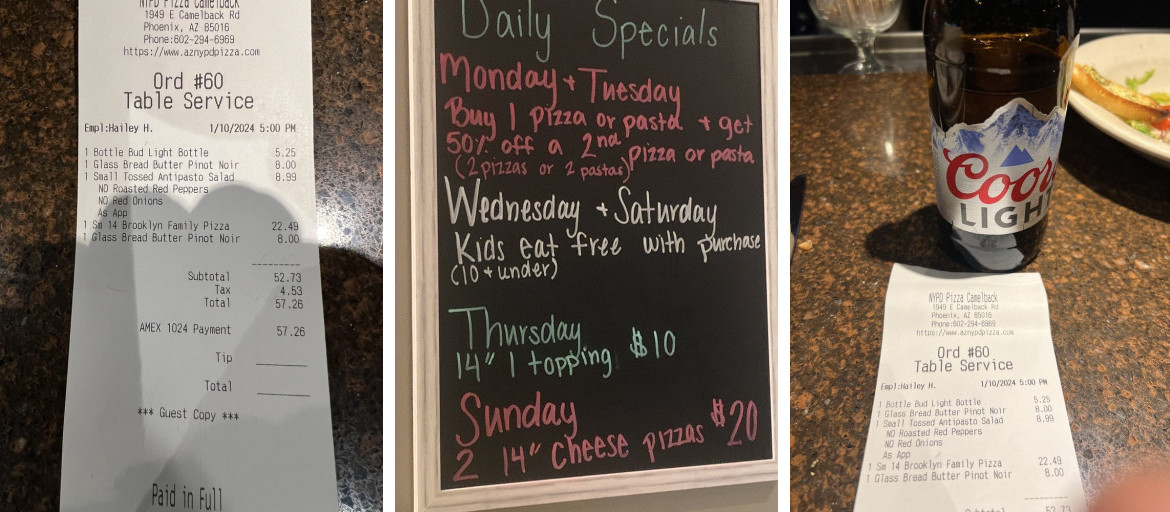 NYPD Pizza Camelback
1949 E Camelback Rd
Phoenix, AZ 85016
Phone:602-294-6969
https://www.aznypdpizza.com
Ord #60
Table Service
Empl:Hailey H. 1/10/2024 5:00 PM
1 Bottle Bud Light Bottle 5.25
1 Glass Bread Butter Pinot Noir 8.00
1 Small Tossed Antipasto Salad 8.99
NO Roasted Red Peppers
NO Red Onions
As App
1 Sm 14 Brooklyn Family Pizza 22.49
1 Glass Bread Butter Pinot Noir 8.00
Subtotal 52.73
Tax 4.53
Total 57.26
AMEX 1024 Payment 57.26
Tip
Total
*** Guest Copy ***
Paid in Full
Daily Specials
Monday + Tuesday
Buy 1 pizza or pasta + get
50% off a 2nd pizza or pasta
(2 pizzas or 2 pastas)
Wednesday + Saturday
Kids eat free with purchase
(10 + under)
Thursday
14" 1 topping $10
Sunday
2 14" Cheese pizzas $20
Coors
LIGHT
NYPD Pizza Camelback
1949 E Camelback Rd
Phoenix, AZ 85016
Phone:602-294-6969
https://www.aznypdpizza.com
Ord #60
Table Service
Empl:Hailey H. 1/10/2024 5:00 PM
1 Bottle Bud Light Bottle 5.25
1 Glass Bread Butter Pinot Noir 8.00
1 Small Tossed Antipasto Salad 8.99
NO Roasted Red Peppers
NO Red Onions
As App
1 Sm 14 Brooklyn Family Pizza 22.49
1 Glass Bread Butter Pinot Noir 8.00
Subtotal 52.73